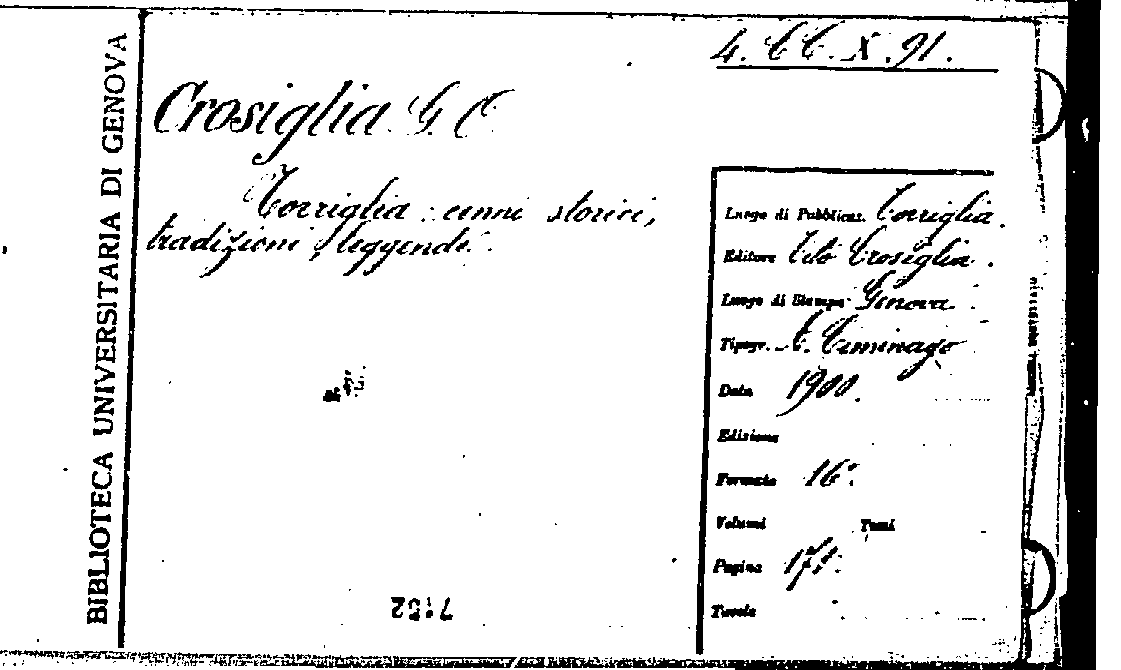 BIBLIOTECA UNIVERSITARIA DI GENOVA
4. CC. X. 91.
Crosiglia G. C.
Torriglia: cenni storici,
tradizioni, leggende.
Luogo di Pubblicaz. Torriglia.
Editore Tito Crosiglia.
Luogo di Stampa Genova
Tipogr. C. Ciminago
Data 1900.
Edizione
Formato 16°.
Volumi Tomi
Pagine 171.
Tavole